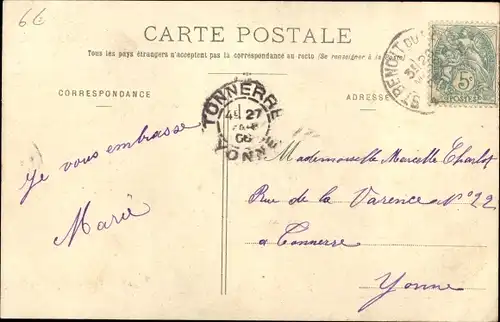 6€
CARTE POSTALE
Tous les pays étrangers n'acceptent pas la correspondance au recto (Se renseigner à la
CORRESPONDANCE
ADRESSE
TONNERRE
27
06
YONNE
ST BENOIT DU
5c
POSTES
Je vous embrasse
Marie
Mademoiselle Marcelle Charlot
Rue de la Varence No 22
a Tonnerre
Yonne